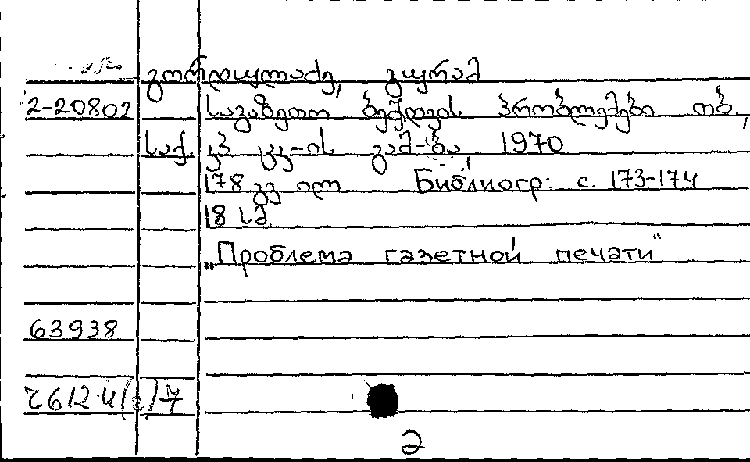 გორდელაძე, გურამ
2-20802 საგაზეთო ბეჭდვის პრობლემები თბ.,
საქ. კპ ცკ-ის გამ-ბა 1970
178 გვ ილ Библиогр: с. 173-174
18 სმ
"Проблема газетной печати"
63938